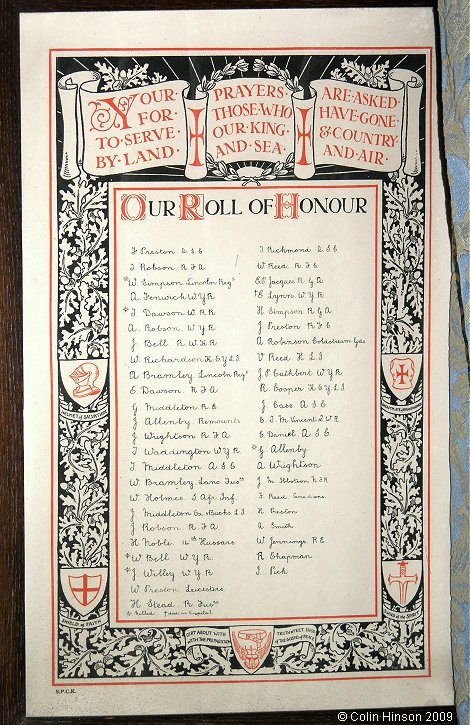 YOUR · PRAYERS · ARE · ASKED ·
FOR · THOSE · WHO · HAVE · GONE ·
TO · SERVE · OUR · KING · & COUNTRY
BY · LAND · AND · SEA · AND · AIR ·
OUR ROLL OF HONOUR
F Preston A S C
T Robson R F A
*W. Simpson Lincoln Regt
A Fenwick W Y R
*T Dawson W R R
A. Robson W. Y R.
J Bell R. W. K R
W Richardson K O Y L I
A Bramley Lincoln Regt
E. Dawson R. F A
G. Middleton R. E.
J Allenby. Remounts
J Wrightson R. F A
T Waddington W Y R
T Middleton A S C
W Bramley Lanc. Fusrs
W Holmes S Afr Inf.
J. Middleton Ox & Bucks L I
J Robson R. F. A.
H Noble 14th Hussars
*W Bell W. Y. R
*J. Willey W Y R
W Preston Leicesters
H Stead R. Fusrs
* Killed † died in hospital
J Richmond A S C
W Reed R F C
E C Jacques R G A
†E Lynn W Y R
H Simpson R G A
J Preston R F C
A Robinson Coldstream Gds
V Reed H L I
J. P Cuthbert W Y R
R. Cooper K O Y L I
J Cass A. S. C.
C. J. M. Vincent L W R
C Daniel A. S. C
*G Allenby
A Wrightson
J M.
T Reed
H Preston
A Smith
W Jennings R. E.
R Chapman
T. Pick
HELMET of SALVATION
SHIELD of FAITH
GIRT ABOUT WITH TRUTH & FEET SHOD
WITH THE PREPARATION OF THE GOSPEL of PEACE
S.P.C.K.
© Colin Hinson 2009